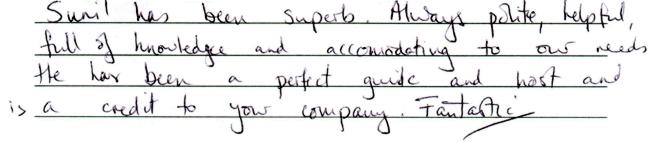 Sunil has been superb. Always polite, helpful,
full of knowledge and accomodating to our needs
He has been a perfect guide and host and
is a credit to your company. Fantastic